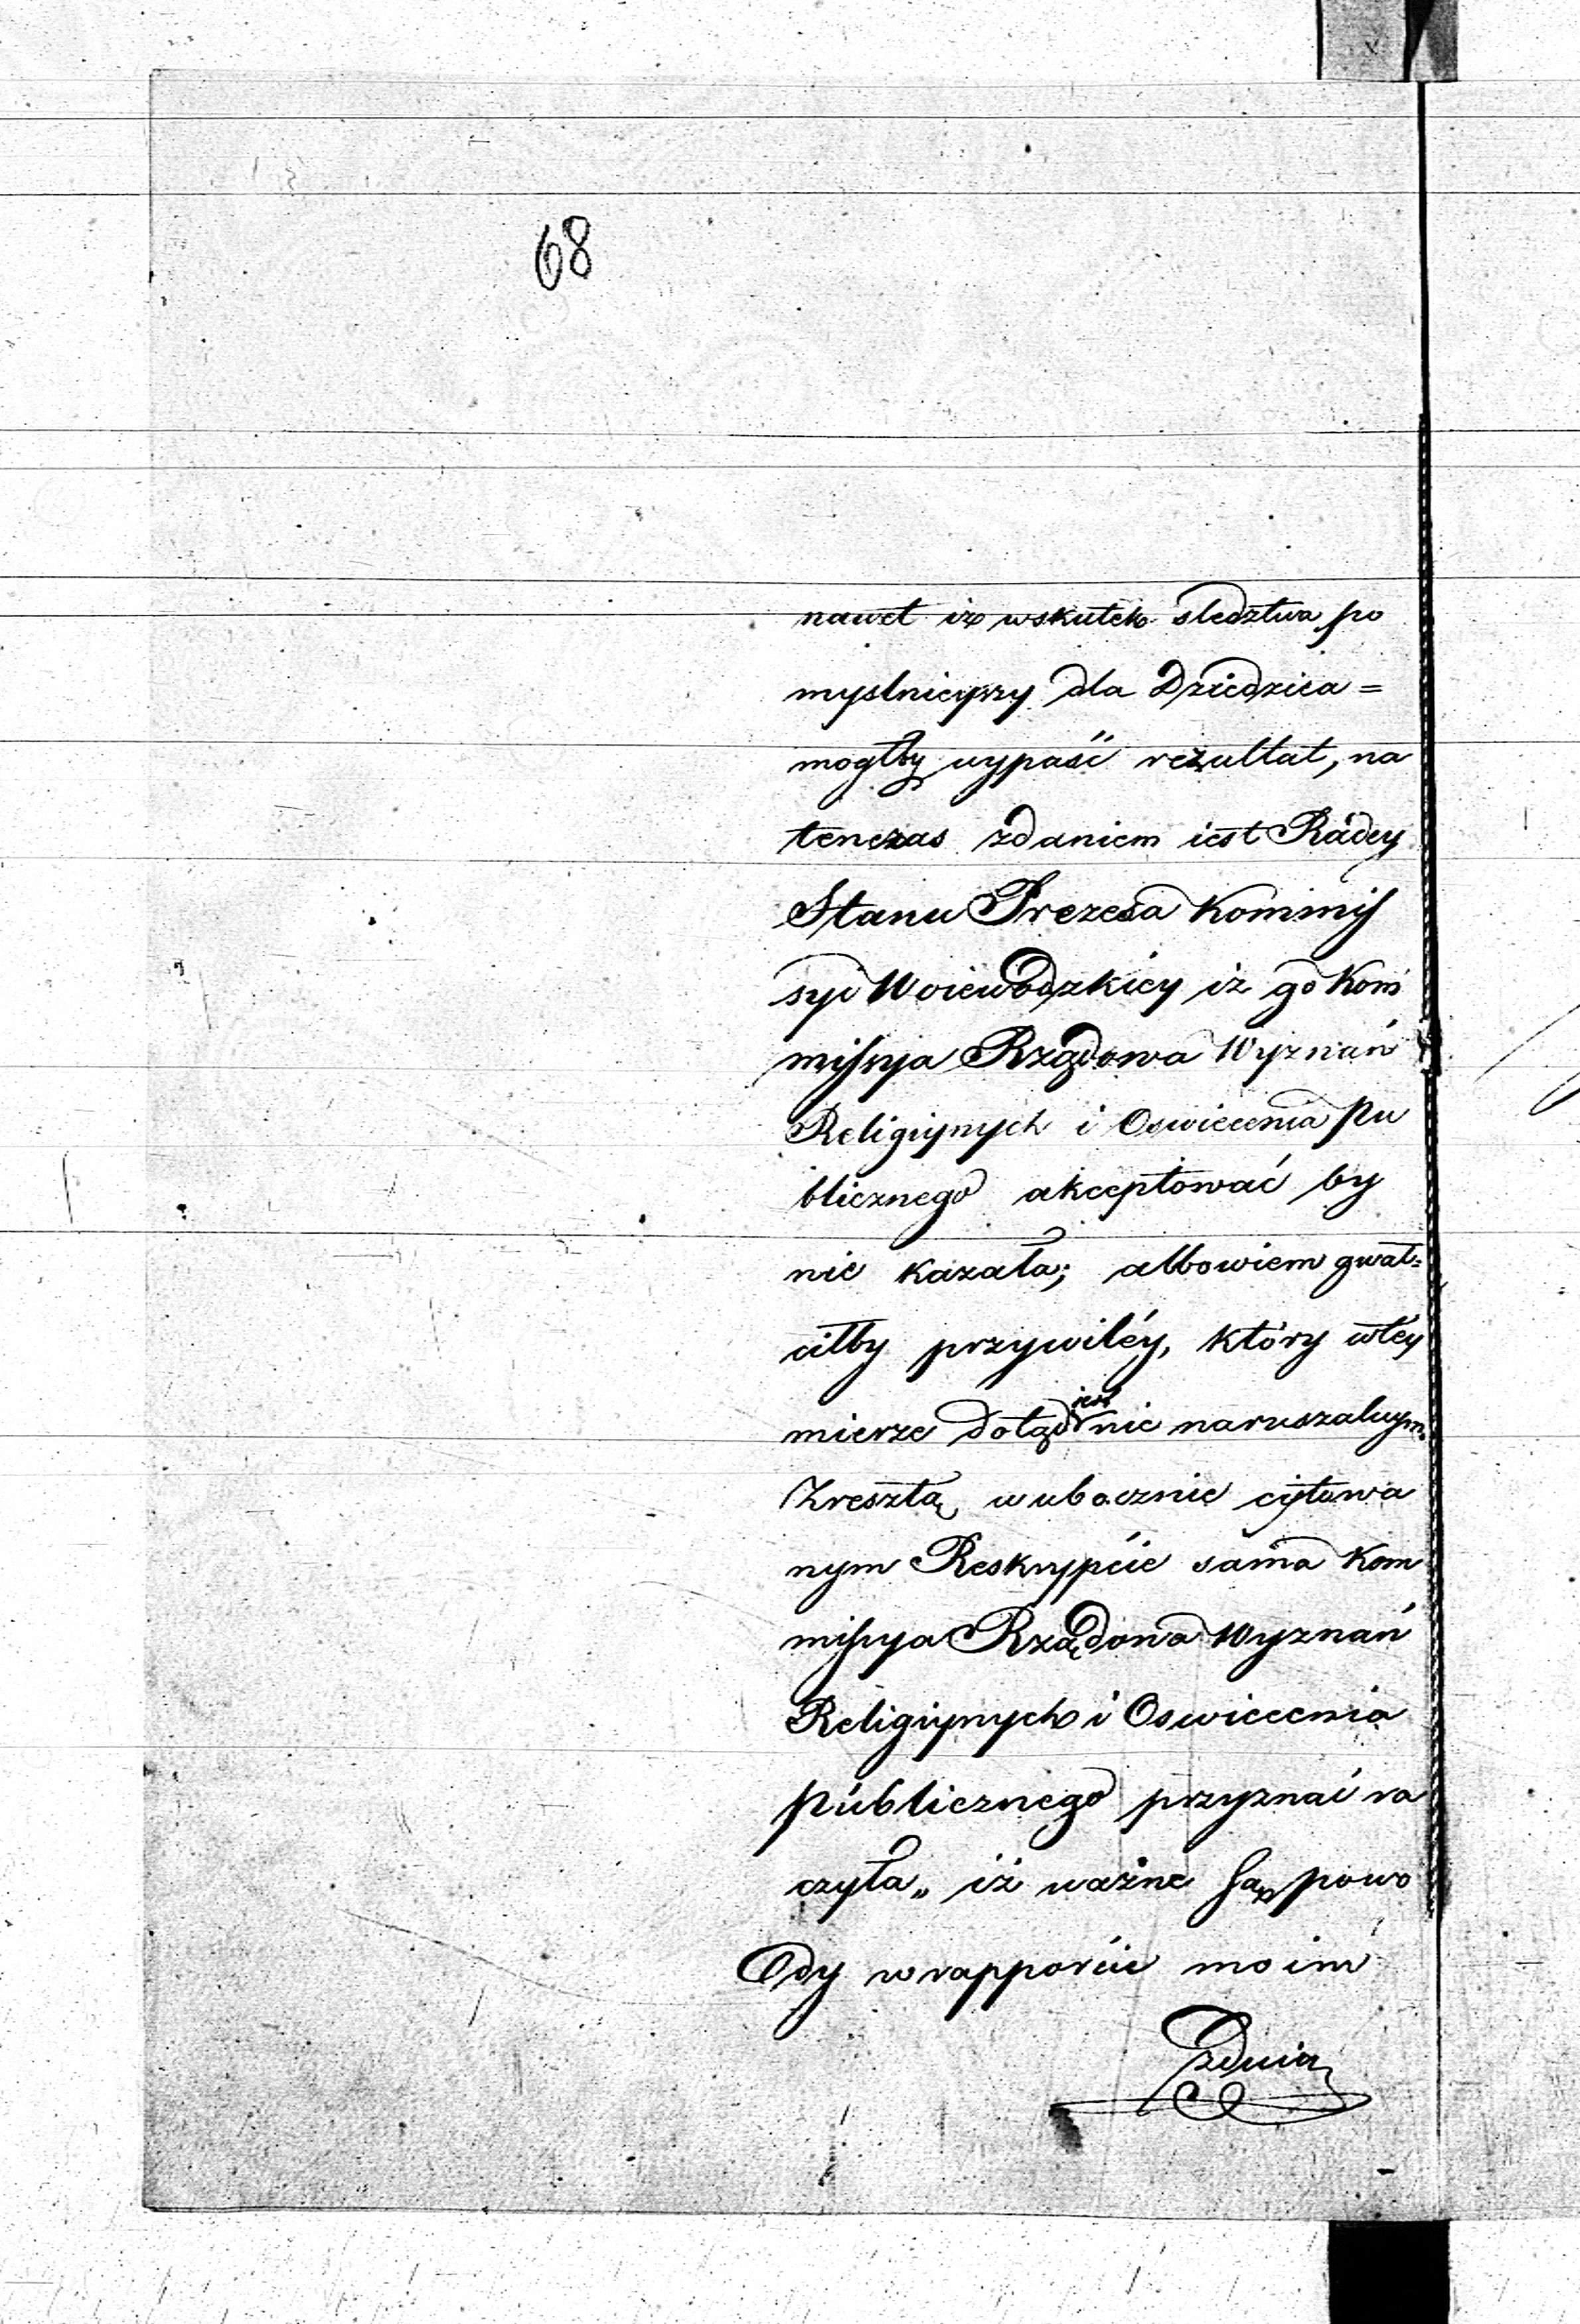 68
nawet iż wskutek sledztwa po
myslnieyszy dla Dziedzica =
mogłby wypaść rezultat, na
tenczas zdaniem iest Radcy
Stanu Prezesa Kommis
syi Woiewodzkiey iż go Kom
missyja Rządowa Wyznań
Religiynych i Oswiecenia Pu
blicznego akceptować by
nie kazała; albowiem gwał=
ciłby przywiléy, który wtéy
mierze dotąd jest nie naruszalnym.
Zresztą w ubocznie cytowa
nym Reskrypcie sama Kom
missya Rządowa Wyznań
Religiynych i Oswiecenia
Publicznego przyznać ra
czyła„ iż ważne są powo
dy w rapporcie moim
zdnia